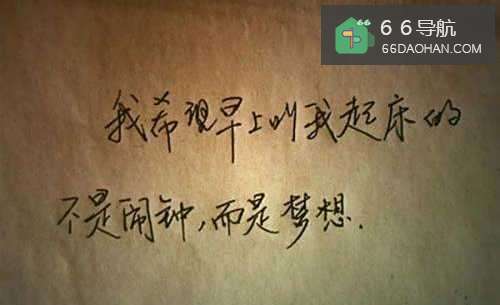 66导航
66DAOHAN.COM
我希望早上叫我起床的
不是闹钟,而是梦想.